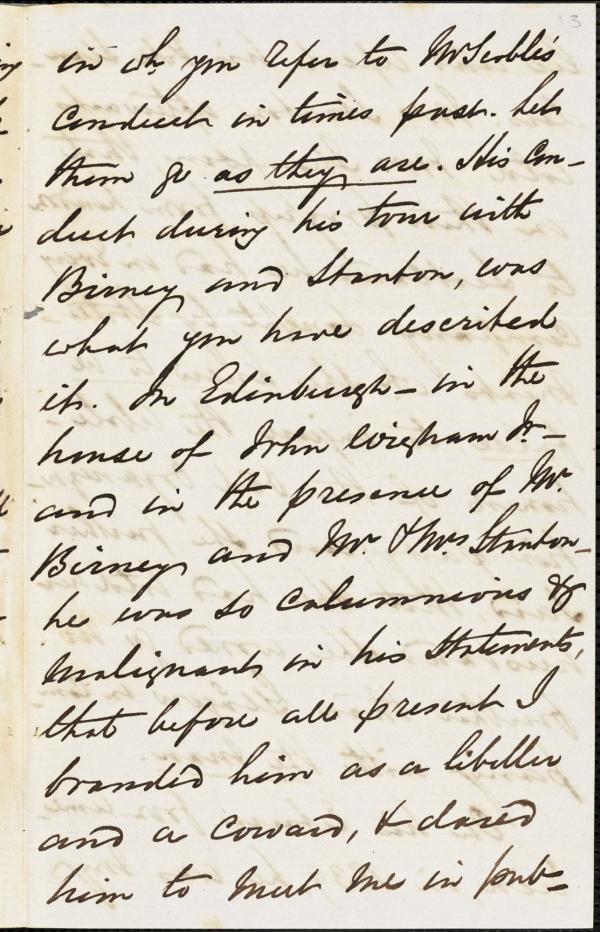 3
in wh. you refer to Mr Scoble's
conduct in times past. Let
them go as they are. His con-
duct during his tour with
Birney and Stanton, was
what you have described
it. In Edinburgh — in the
house of John Wigham Jr. —
and in the presence of Mr.
Birney and Mr. & Mrs Stanton —
he was so calumnious &
malignant in his statements,
that before all present I
branded him as a libeller
and a coward, & dared
him to meet me in pub-